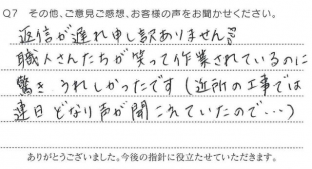 Q7 その他、ご意見ご感想、お客様の声をお聞かせください。
返信が遅れ申し訳ありません。
職人さんたちが笑って作業されているのに
驚き うれしかったです(近所の工事では
連日 どなり声が聞こえていたので…)
ありがとうございました。今後の指針に役立たせていただきます。